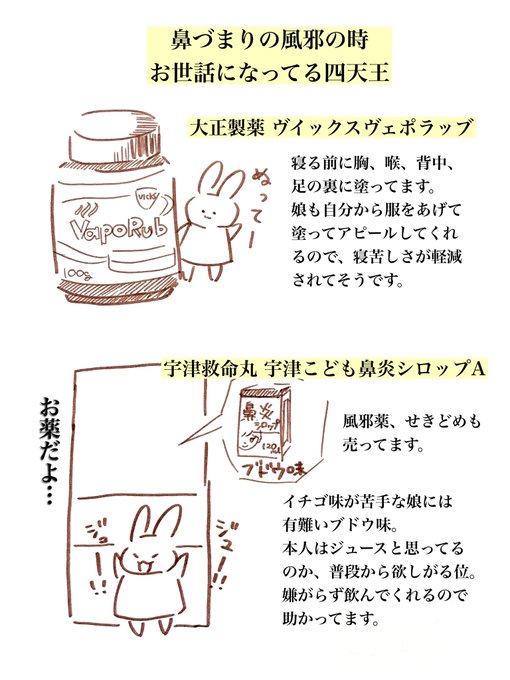 鼻づまりの風邪の時
お世話になってる四天王
大正製薬 ヴイックスヴェポラッブ
寝る前に胸、喉、背中、
足の裏に塗ってます。
娘も自分から服をあげて
塗ってアピールしてくれ
るので、寝苦しさが軽減
されてそうです。
VICKS
VapoRub
100g
ぬってー
宇津救命丸 宇津こども鼻炎シロップA
お薬だよ…
鼻炎
シロップ
120mL
ブドウ味
風邪薬、せきどめも
売ってます。
ジュー!!
ジュー!!
イチゴ味が苦手な娘には
有難いブドウ味。
本人はジュースと思ってる
のか、普段から欲しがる位。
嫌がらず飲んでくれるので
助かってます。